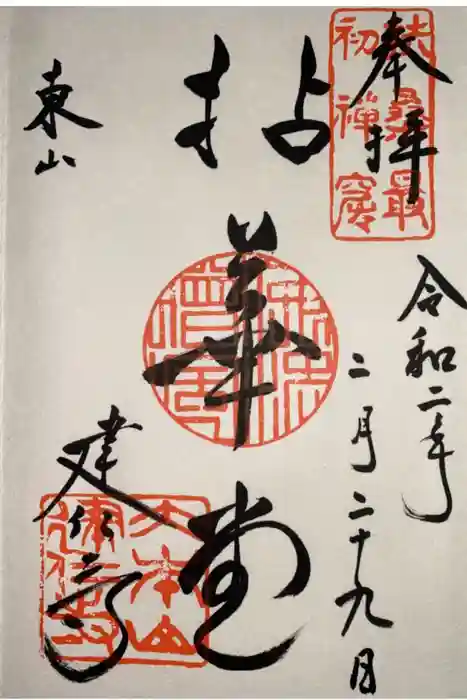 奉拝
扶桑最
初禅窟
令和二年
二月二十九日
拈華堂
東山
建仁寺
大本山
建仁寺